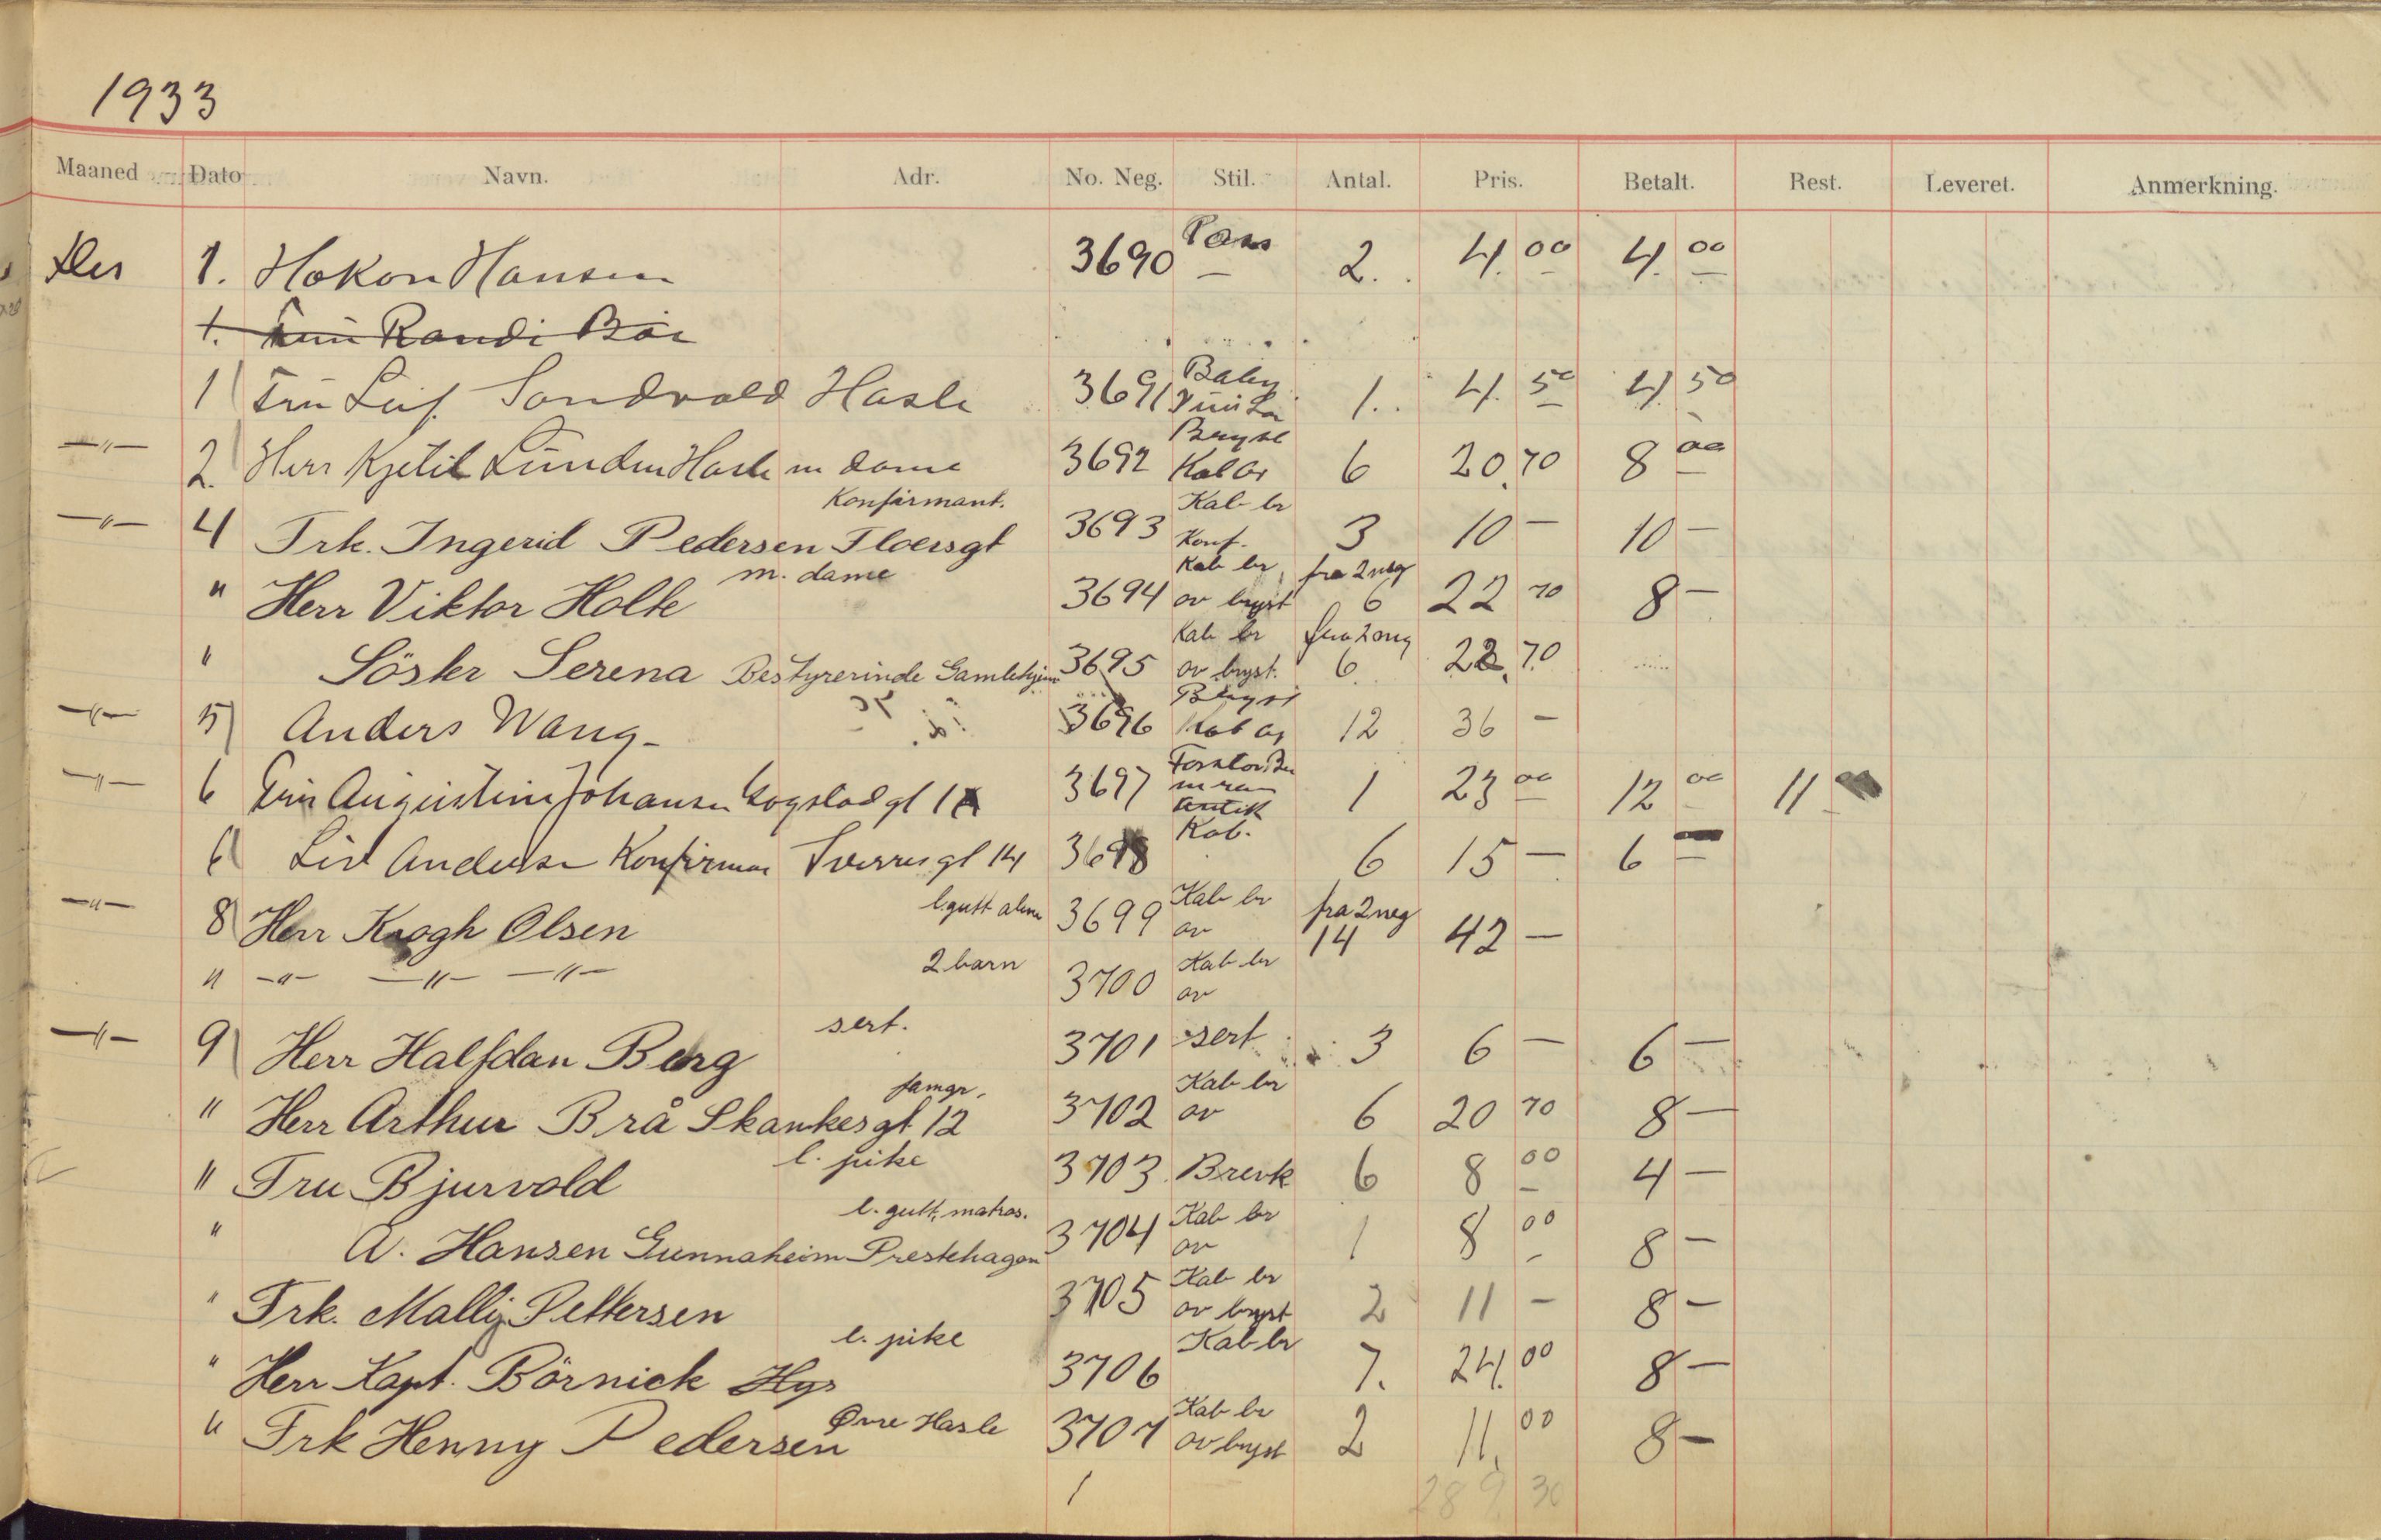 1933
Maaned Dato Navn. Adr. No. Neg. Stil. Antal. Pris. Betalt. Rest. Leveret. Anmerkning.
Des 1. Hokon Hansen 3690 Pass — 2. 4.00 4.00
1. Fru Randi Bör
1 Fru Leif Sandvold Hasle 3691 Baby 1. 4.50 4.50
—"— 2. Herr Kjetil Lunden Hasle m dame 3692 Bryst Kab 6 20,70 8 00
Konfirmant. Kab br
—"— 4 Frk. Ingerid Pedersen Floersgt 3693 Konf. 3 10 — 10 —
m. dame Kab br fra 2 neg
" Herr Viktor Holte 3694 ov bryst 6 22 70 8 —
Kab br fra 2 neg
" Söster Serena Bestyrerinde Gamlehjem 3695 ov bryst. 6 22,70
—"— 5 Anders Wang 3696 Bryst Kab 12 36 —
—"— 6 Fru Augustine Johansen 3697 m ram antik 1 23 00 12 00 11
6 Liv Andersen Konfirman Sverresgt 14 3698 Kab. 6 15 — 6 —
l. gutt alene Kab br fra 2 neg
—"— 8 Herr Krogh Olsen 3699 ov 14 42 —
2 barn Kab br
" —"— —"— —"— 3700 ov
sert.
—"— 9 Herr Halfdan Berg 3701 sert 3 6 — 6 —
famgr. Kab br
" Herr Arthur Brå Skankesgt 12 3702 ov 6 20 70 8 —
l. pike
" Fru Bjurvold 3703 Brevk 6 8 00 4 —
l. gutt, matros. Kab br
" A. Hansen Gunnaheim Prestehagen 3704 ov 1 8 00 8 —
Kab br
" Frk. Mally Pettersen 3705 ov bryst 2 11 — 8 —
l. pike Kab br
" Herr Kapt. Börnick Hgs 3706 7. 24.00 8 —
Øvre Hasle Kab br
" Frk Henny Pedersen 3707 ov bryst 2 11,00 8 —
1 289 30